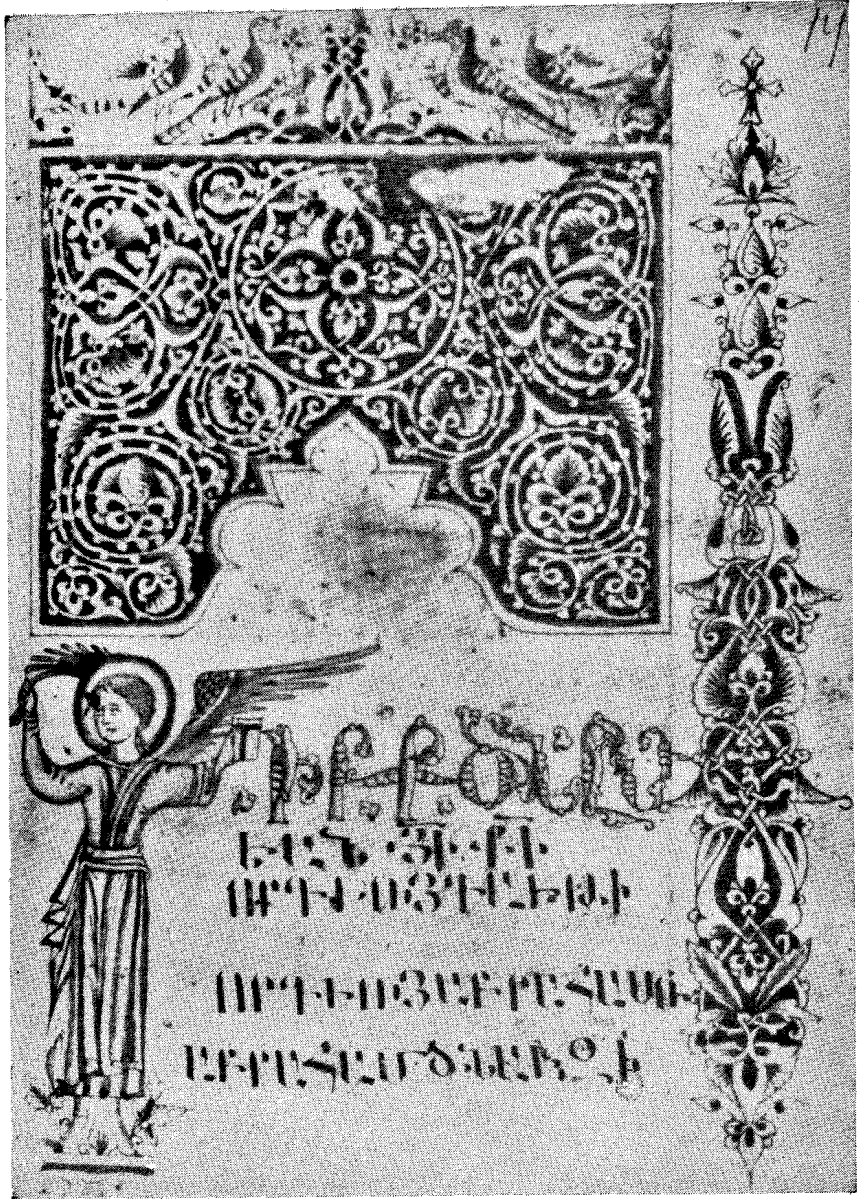 ԳԻՐՔ ԾՆՆԴ
ԵԱՆ ՅԻ ՔԻ
ՈՐԴՒՈՅ ԴԱՒԹԻ
ՈՐԴՒՈՅ ԱԲՐԱՀԱՄՈՒ
ԱԲՐԱՀԱՄ ԾՆԱՒ ԶԻ